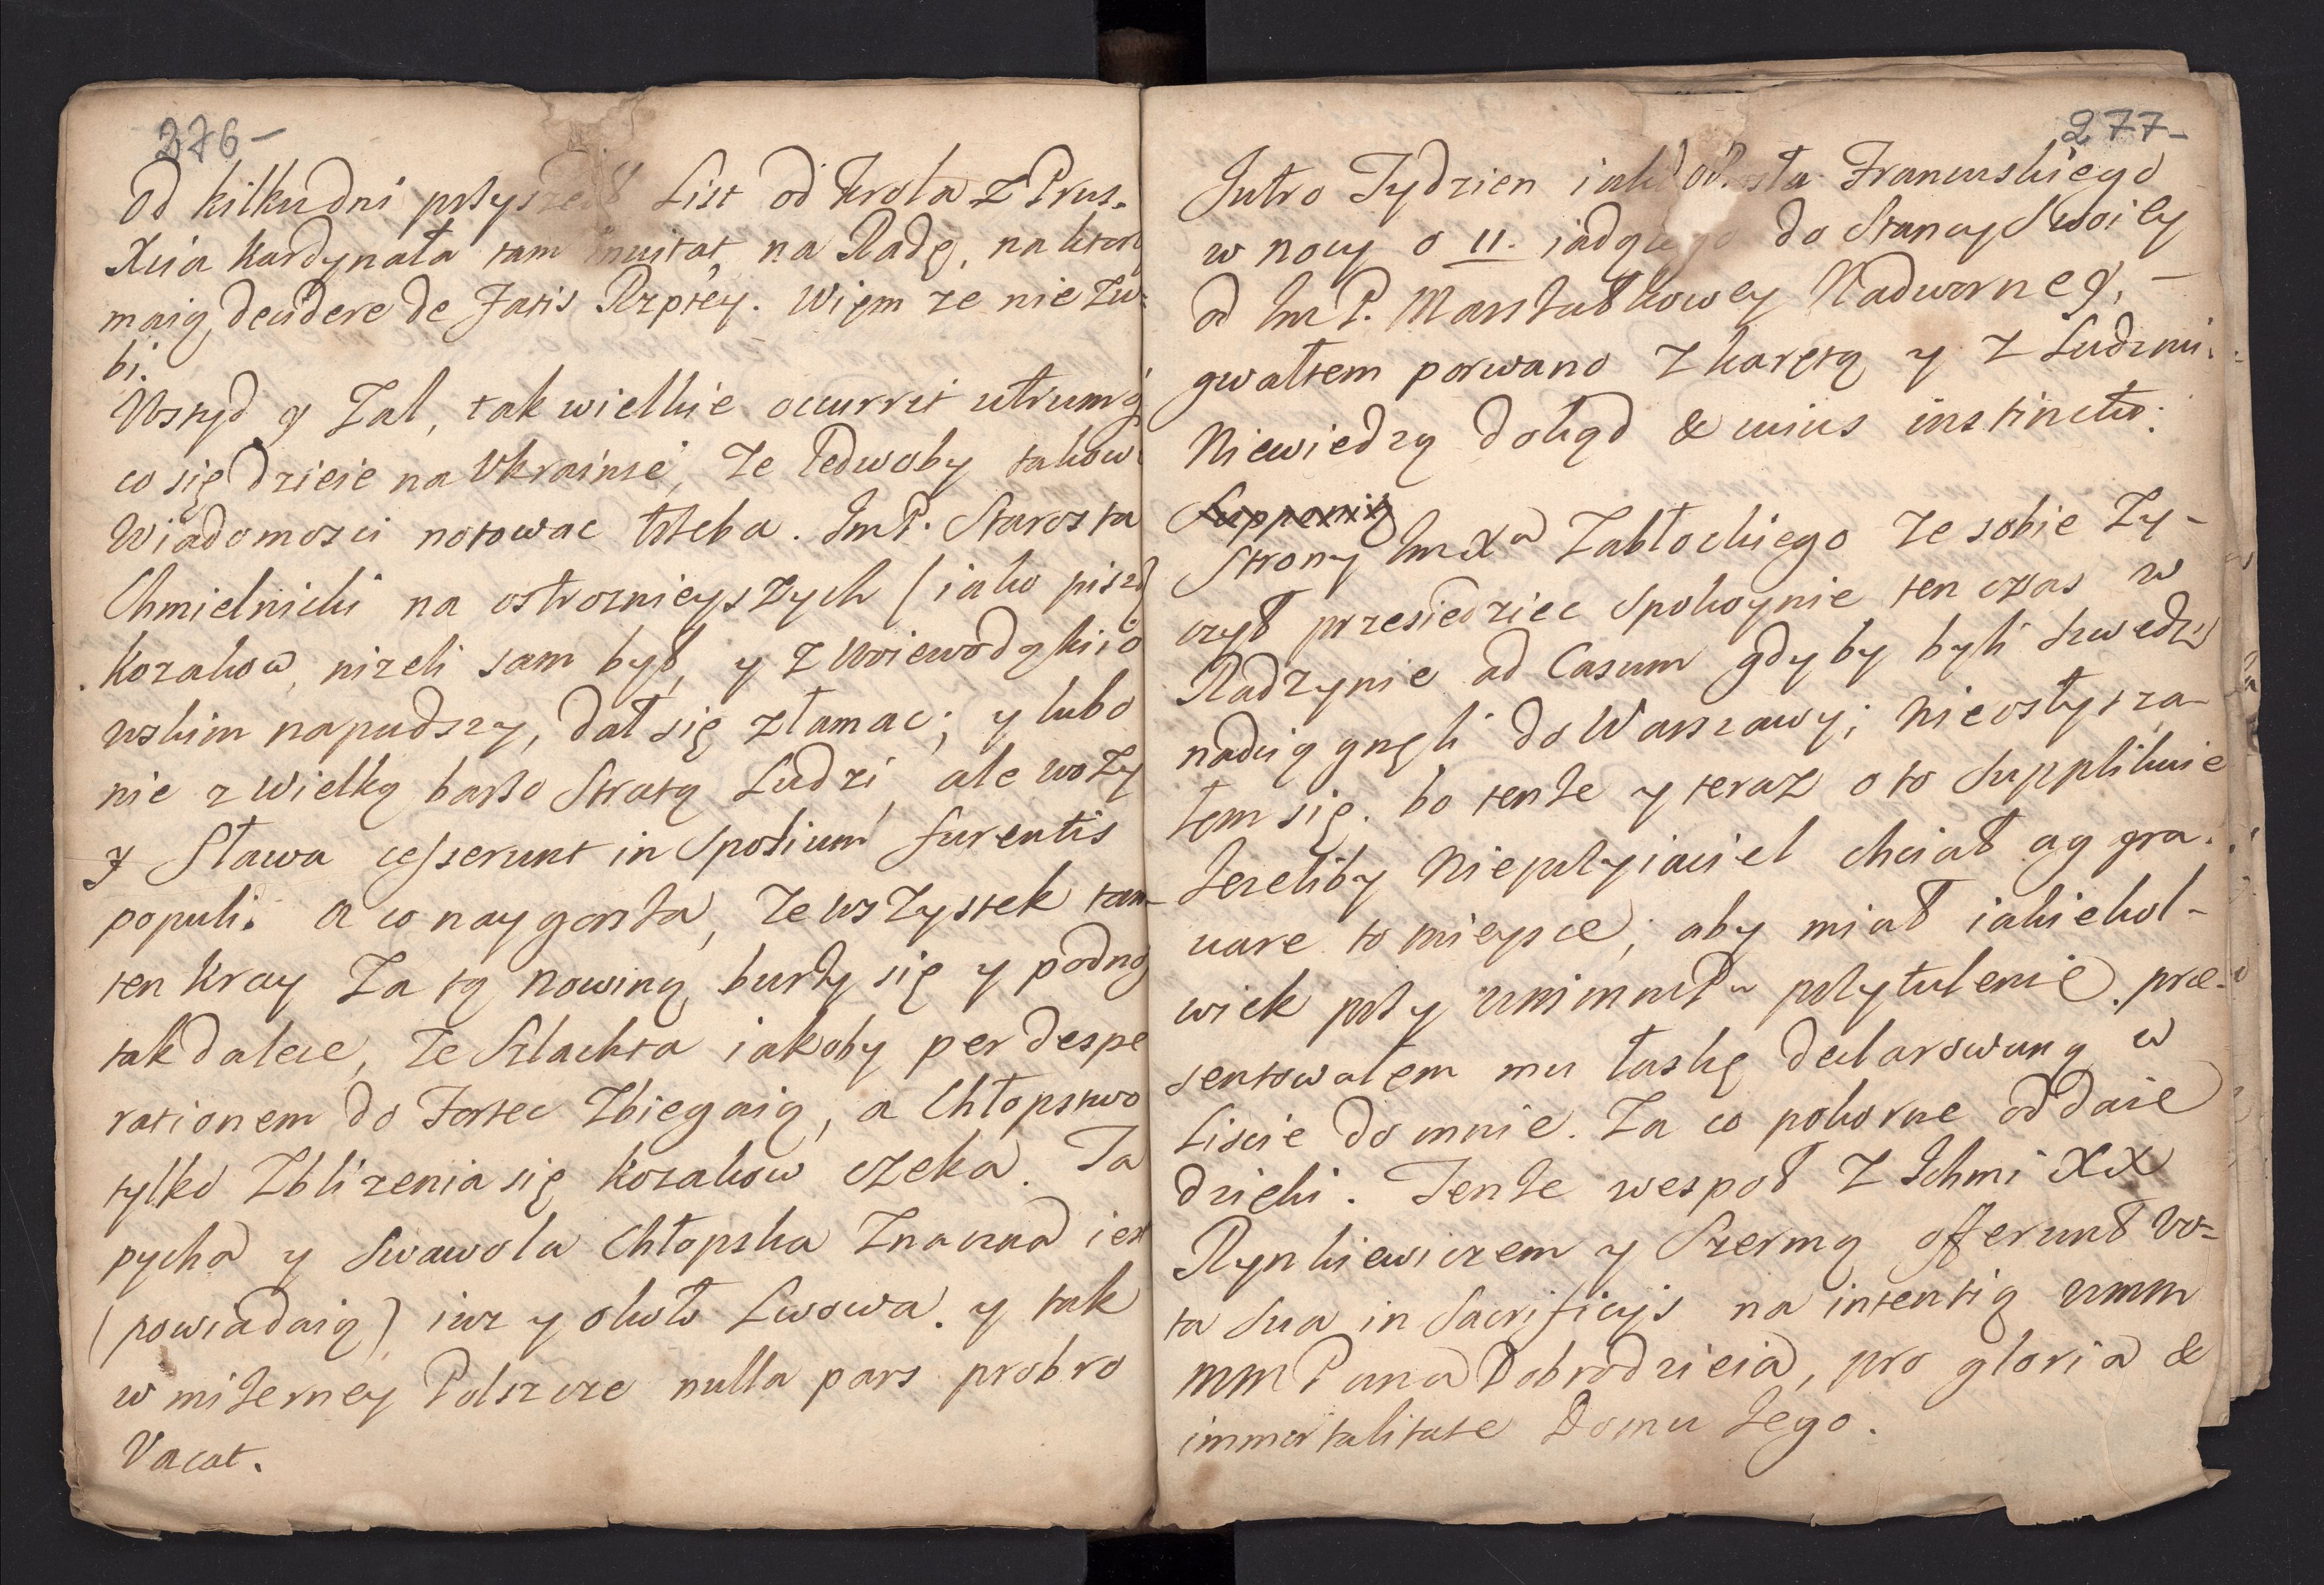 276-
Od kilkudni prżyszedł List od Krola z Prus.
Xcia Kardynała tam inuitat na Radę, na ktorey
maią decidere de Fatis Rzptey. Więm ze nie zw=
bi.
Wstyd y Zal, tak wielkie occurrit utrumq
co się dzieie na Ukrainie, ze ledwoby takow
Wiadomosci notowac trzeba. JmP. Starosta
Chmielnicki na ostroznieyszych (iako piszą
Kozakow, nizeli sam był, y z Woiewodą kiio
wskim napadszy, dał się złamac; y lubo
nie z wielką barżo Stratą Ludzi, ale wozy
y Sława cesserunt in Spolium furentis
populi. a co naygorsza, ze wszystek tam
ten Kray Za tą nowiną burży się y podno
tak dalece, ze Szlachta iakoby per despe
rationem do Fortec Zbiegaią, a Chłopstwo
tylko Zblizenia się Kozakow czeka. Ta
pycha y Swawola Chłopska Znaczna iest
(powiadaią) iuz y około Lwowa. y tak
w mizerney Polszcze nulla pars probro
Vacat.
277-
Jutro Tydzien iako Posła Francuskiego
w nocy o 11. iadącego do Stancy Swoiey
od JmP. Marszałkowey Nadworney, -
gwałtem porwano z karętą y z Ludzmi.
Niewiedzą dokąd & cuius instinctu.
Supponit
Strony Jmxa Zabłockiego ze sobie Zy-
czył przesiedziec Spokoynie ten czas w
Radzynie ad Casum gdyby byli Szwedzi
nadciągnęli do Warszawy; nieosłysza-
łem się. bo tenze y teraz o to Supplikuie
Jezeliby Nieprżyiaciel chciał aggra-
uare to mieysce; aby miał iakiekol-
wiek prży WMMMPa prżytulenie. præ-
sentowałem mu łaskę declarowaną w
Liscie do mnie. Za co pokorne oddaie
dzięki. Tenze wespoł z Ichmi XX
Rynkiewiczem y Szermą offerunt Vo=
ta Sua in Sacrificijs na intentią WMM
MM Pana Dobrodzieia, pro gloria &
immortalitate Domu Jego.